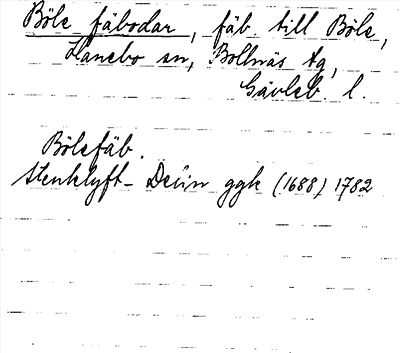 Böle fäbodar, fäb. till Böle,
Hanebo sn, Bollnäs tg,
Gävleb. l.
Bölefäb.
Stenklyft- Deün ggk (1688) 1782